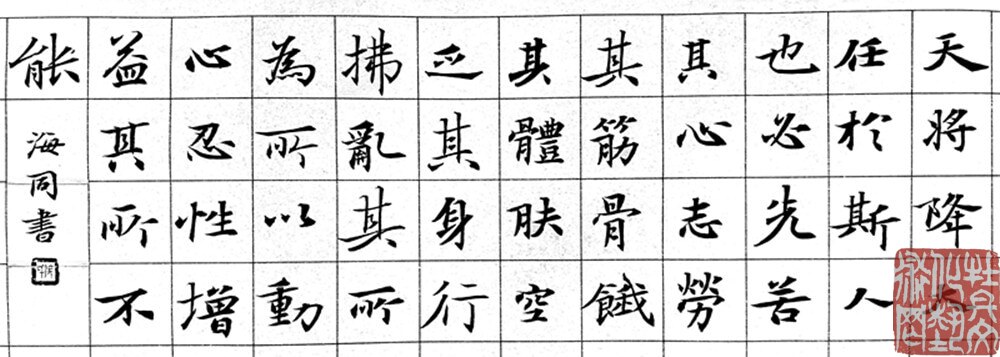 天將降大
任於斯人
也必先苦
其心志勞
其筋骨餓
其體肤空
乏其身行
拂亂其所
為所以動
心忍性增
益其所不
能
海同書